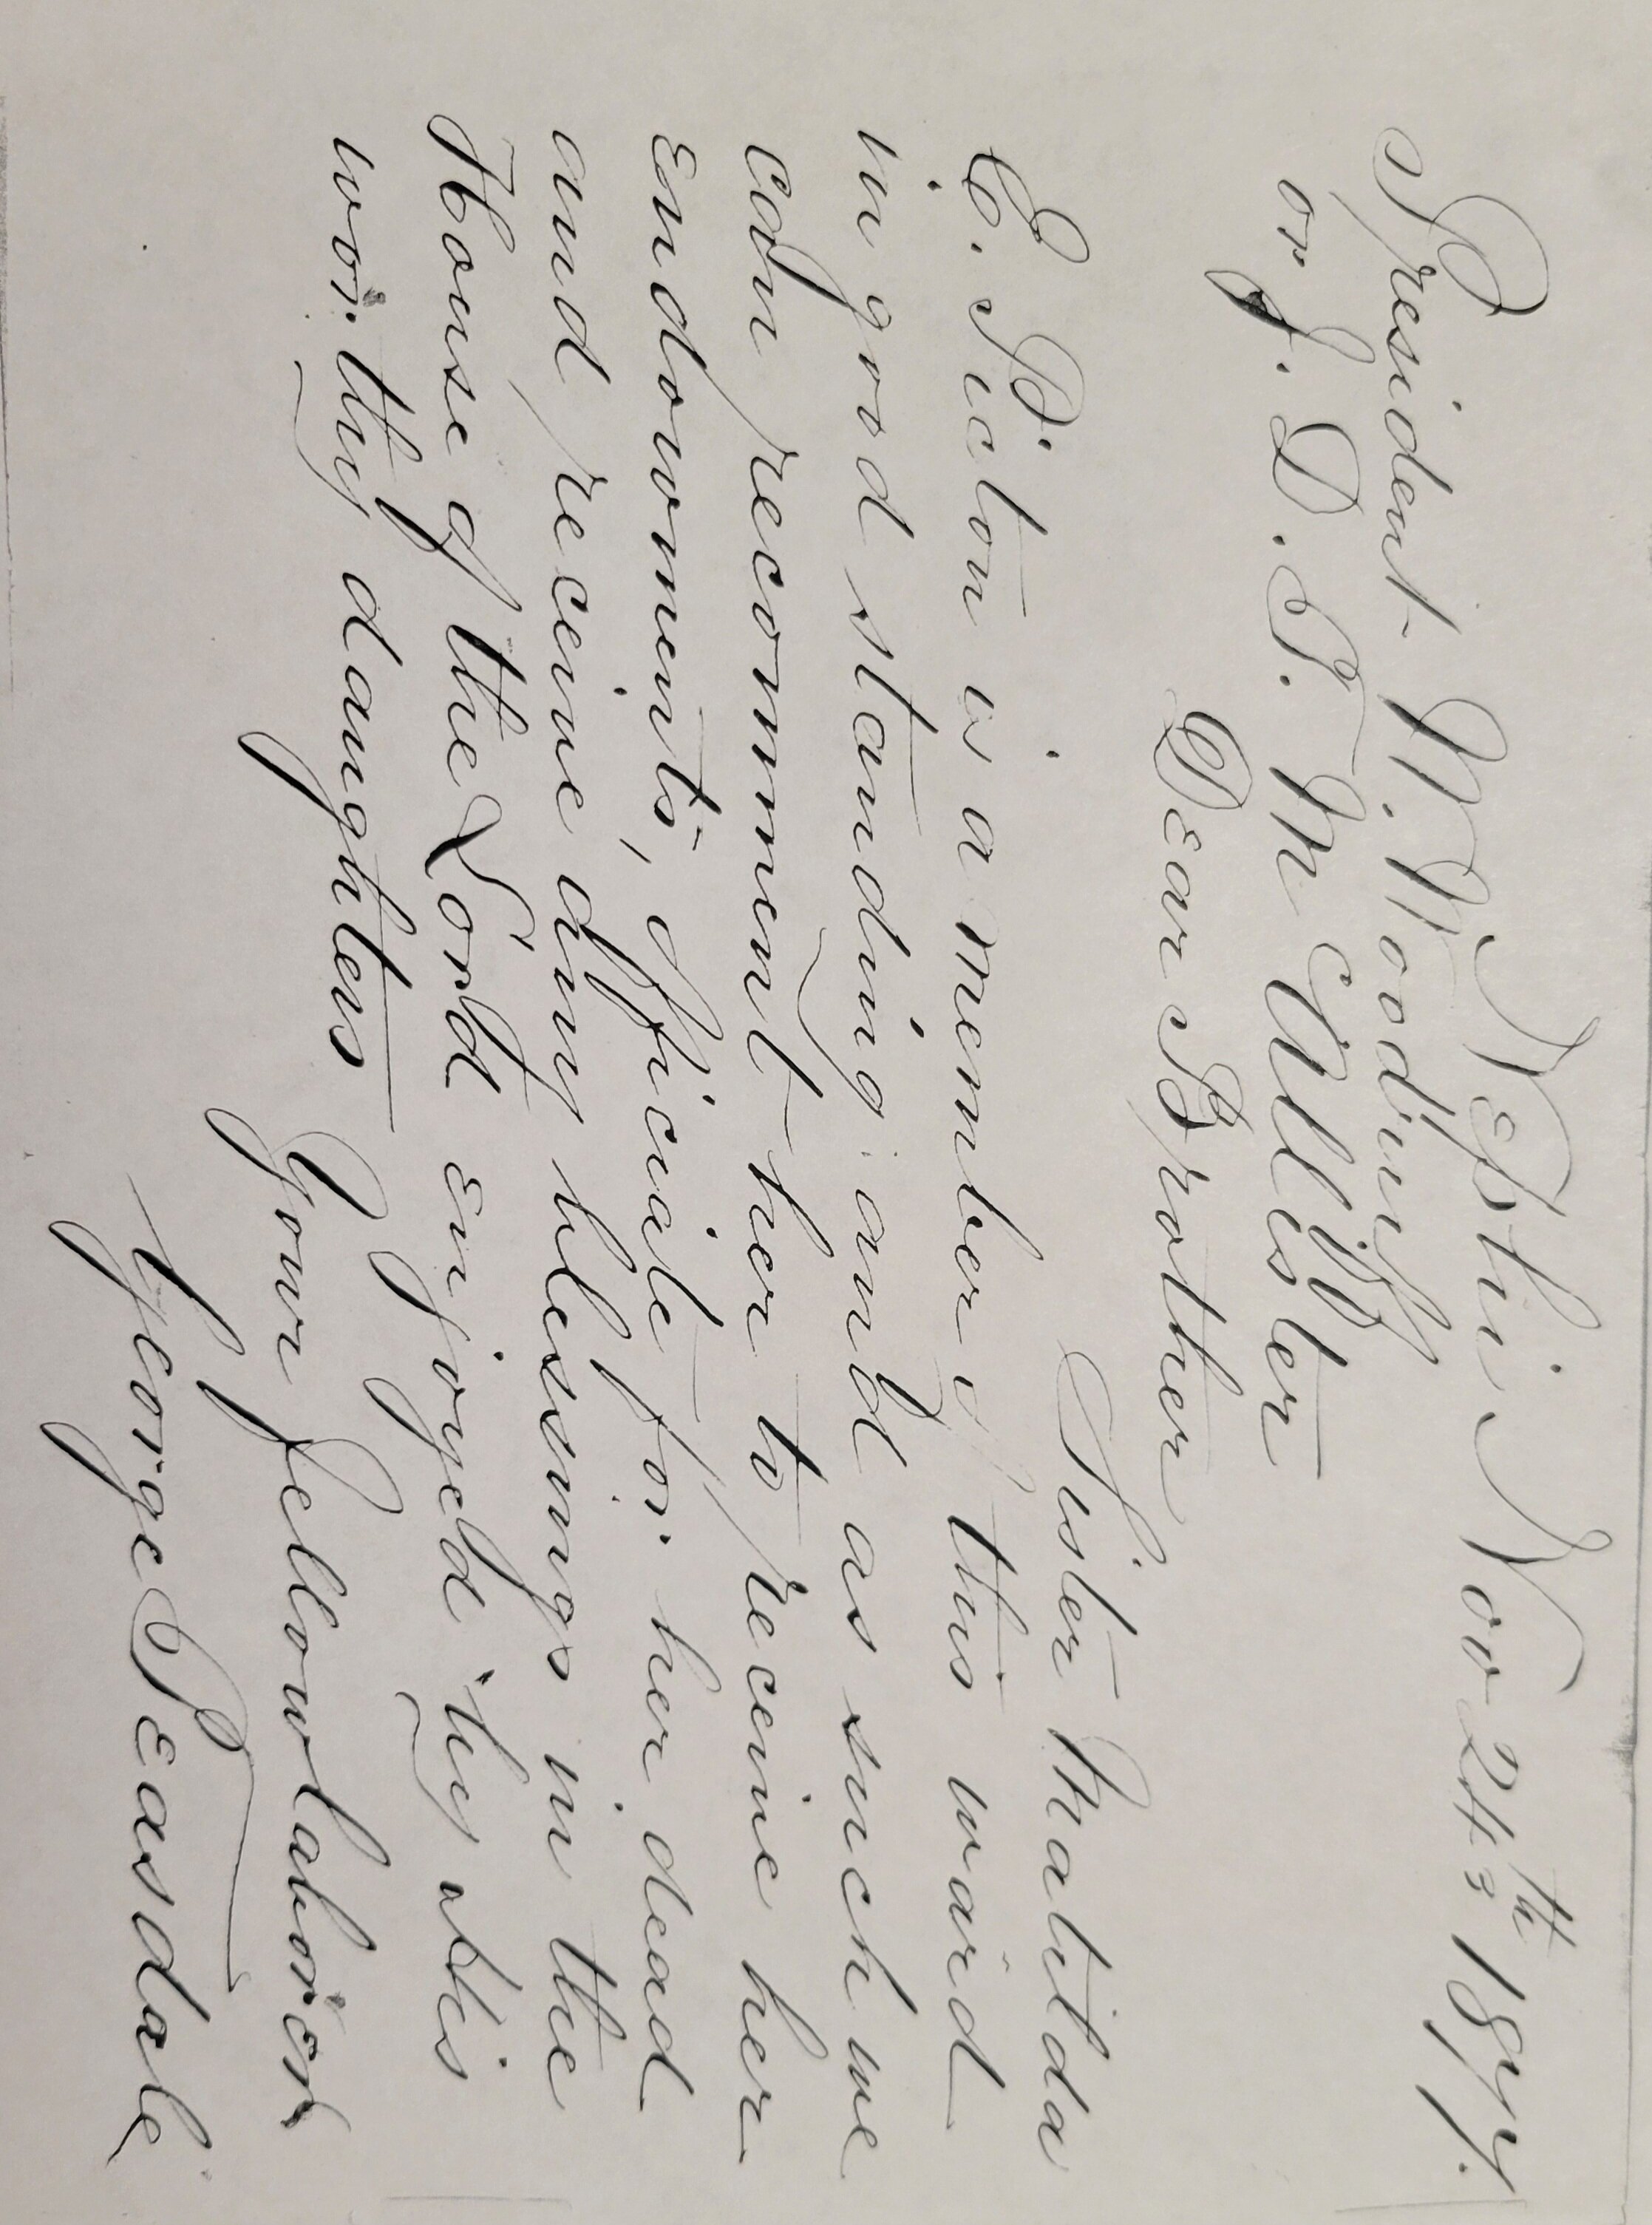 Nephi Nov 24th 1877.
President W. Woodruff
or J. D. T. McAllister
Dear Brother
Sister Matilda
E. Picton is a member in this ward
in good standing and as such we
can recommend her to receive her
Endowments, officiate for her dead
and receive any blessings in the
House of the Lord enjoyed by His
wor.thy daughters
Your fellowlaborer
George Teasdale